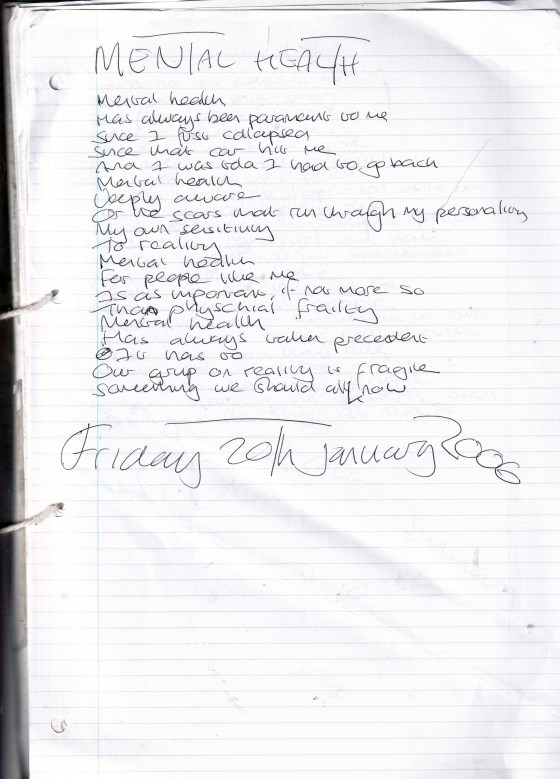 MENTAL HEALTH
Mental health
Has always been paramount to me
Since I first collapsed
Since that car hit me
And I was told I had to go back
Mental health
Deeply aware
Of the scars that run through my personality
My own sensitivity
To reality
Mental health
For people like me
Is as important, if not more so
Than physchial frailty
Mental health
Has always taken precedent
It has to
Our grip on reality is fragile
Something we should all know
Friday 20th January 2006